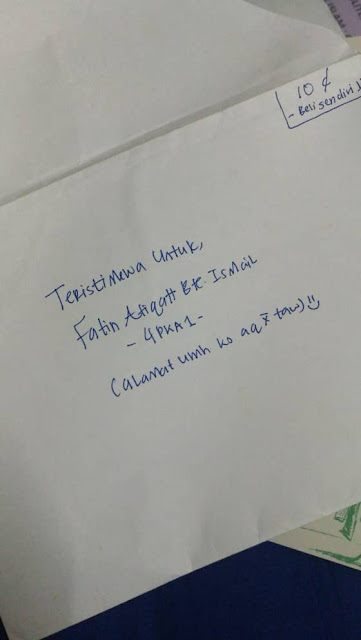 10 ¢
- Beli sendiri
Teristimewa Untuk,
Fatin Atiqah Bt. Ismail
- 4PKA1 -
(alamat umh ko aq x taw)